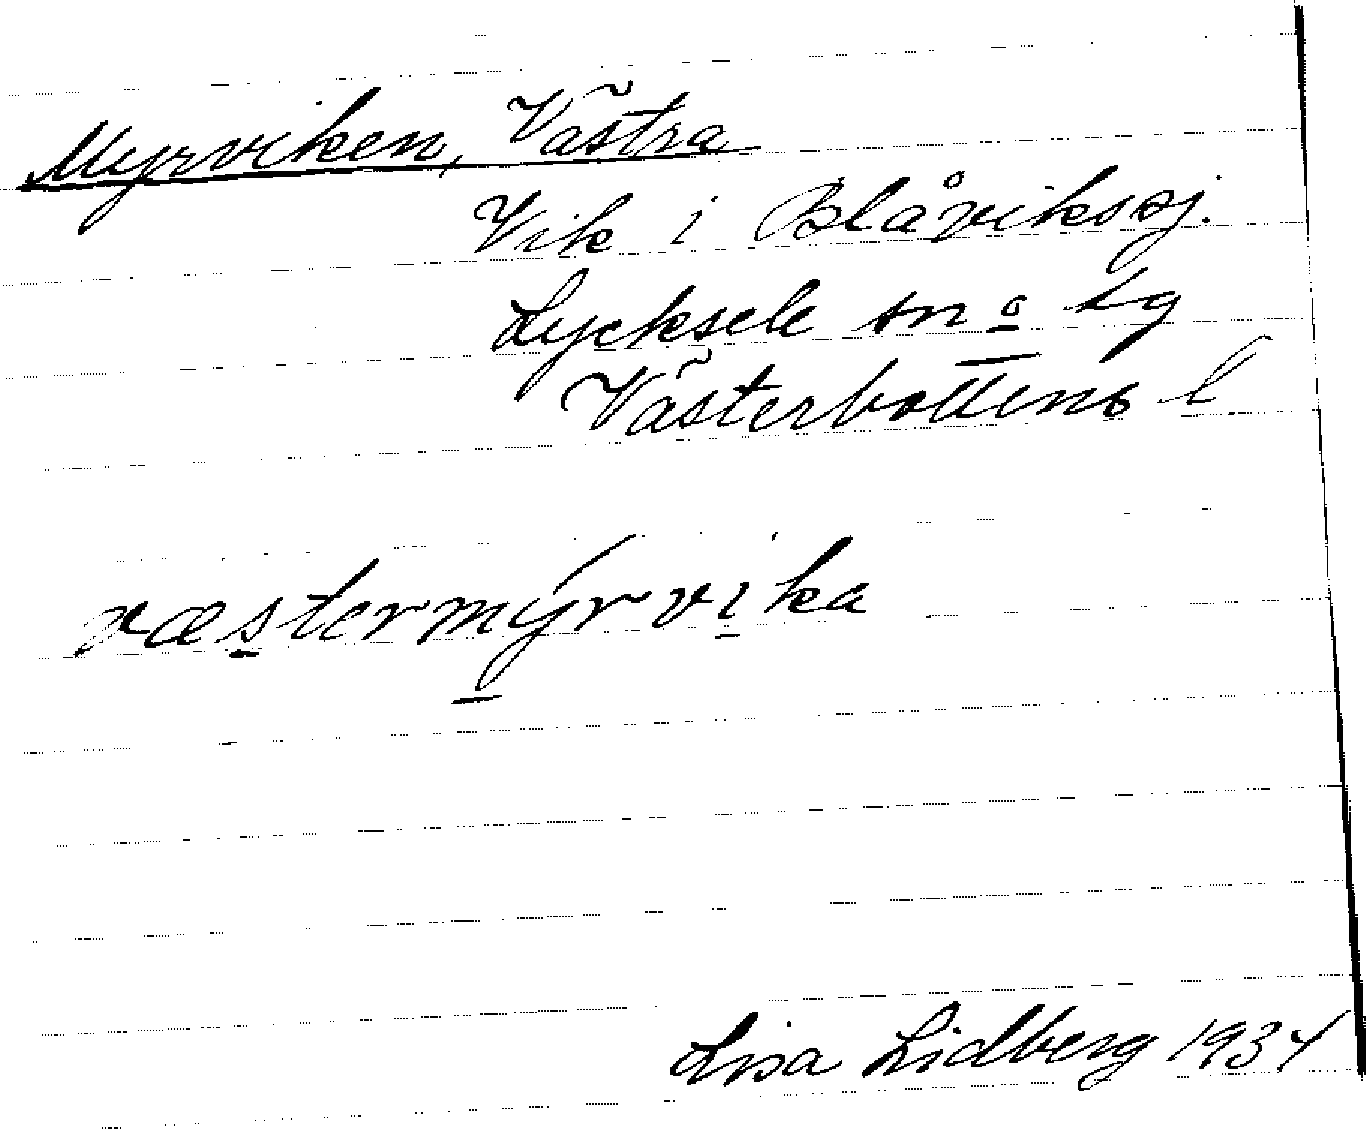 Myrviken, Västra
Vik i Blåviksj.
Lycksele sn o lg
Västerbottens l
væstermýrvika
Lisa Lidberg 1934